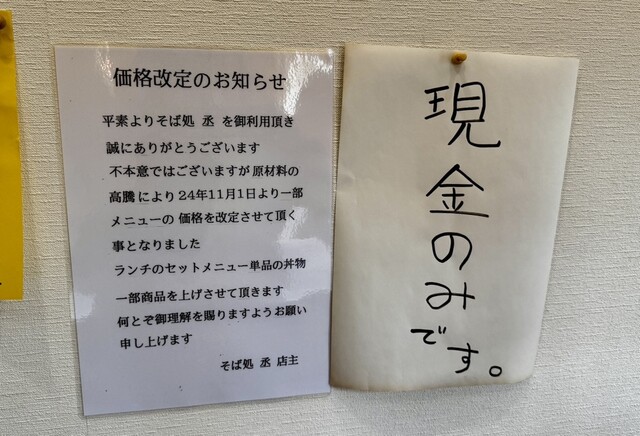 価格改定のお知らせ
平素よりそば処 丞 を御利用頂き
誠にありがとうございます
不本意ではございますが原材料の
高騰により24年11月1日より一部
メニューの価格を改定させて頂く
事となりました
ランチのセットメニュー単品の丼物
一部商品を上げさせて頂きます
何とぞ御理解を賜りますようお願い
申し上げます
そば処 丞 店主
現金のみです。